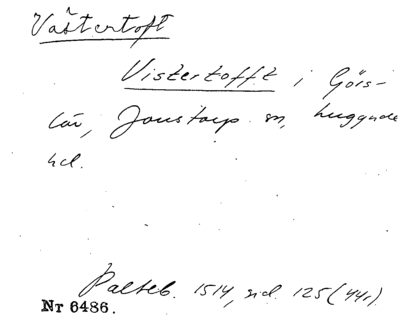 Västertoft
Vistertofft i Görs-
löv, Jonstorp sn, Luggude
hd.
Palteb. 1514, sid. 125 (44r).
Nr 6486.